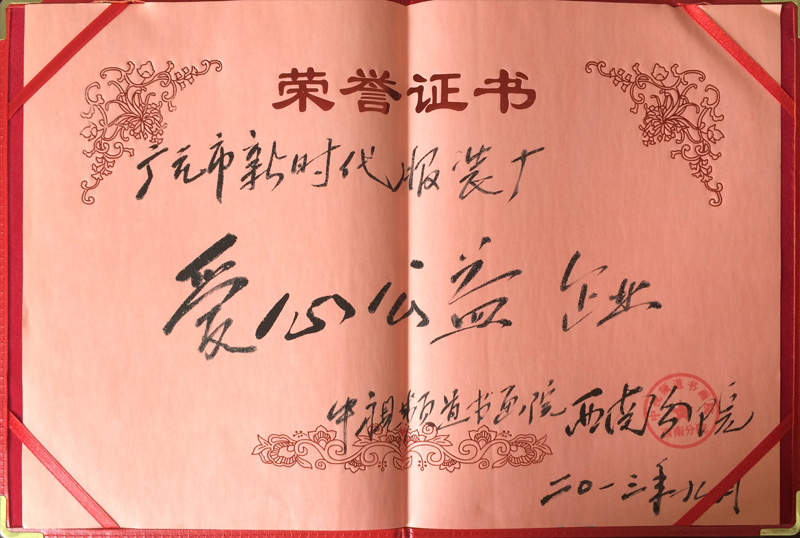 荣誉证书
广元市新时代服装厂
爱心公益企业
中视频道书画院西南分院
二〇一三年九月